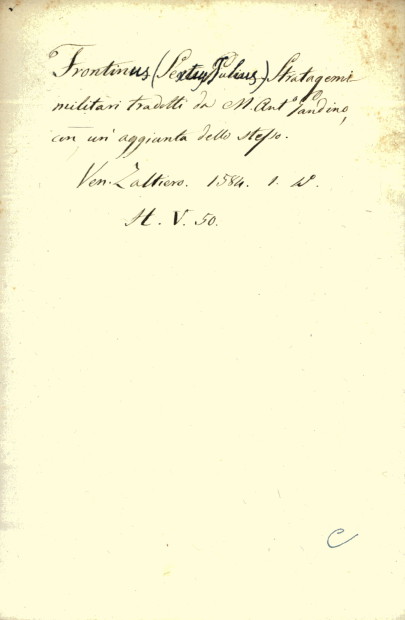 Frontinus (Sextus Julius) Stratagemi
militari tradotti da M. Antº Gandino,
con un' aggiunta dello stesso.
Ven. Zaltiero. 1584. 1. 4º.
H. V. 50.
C